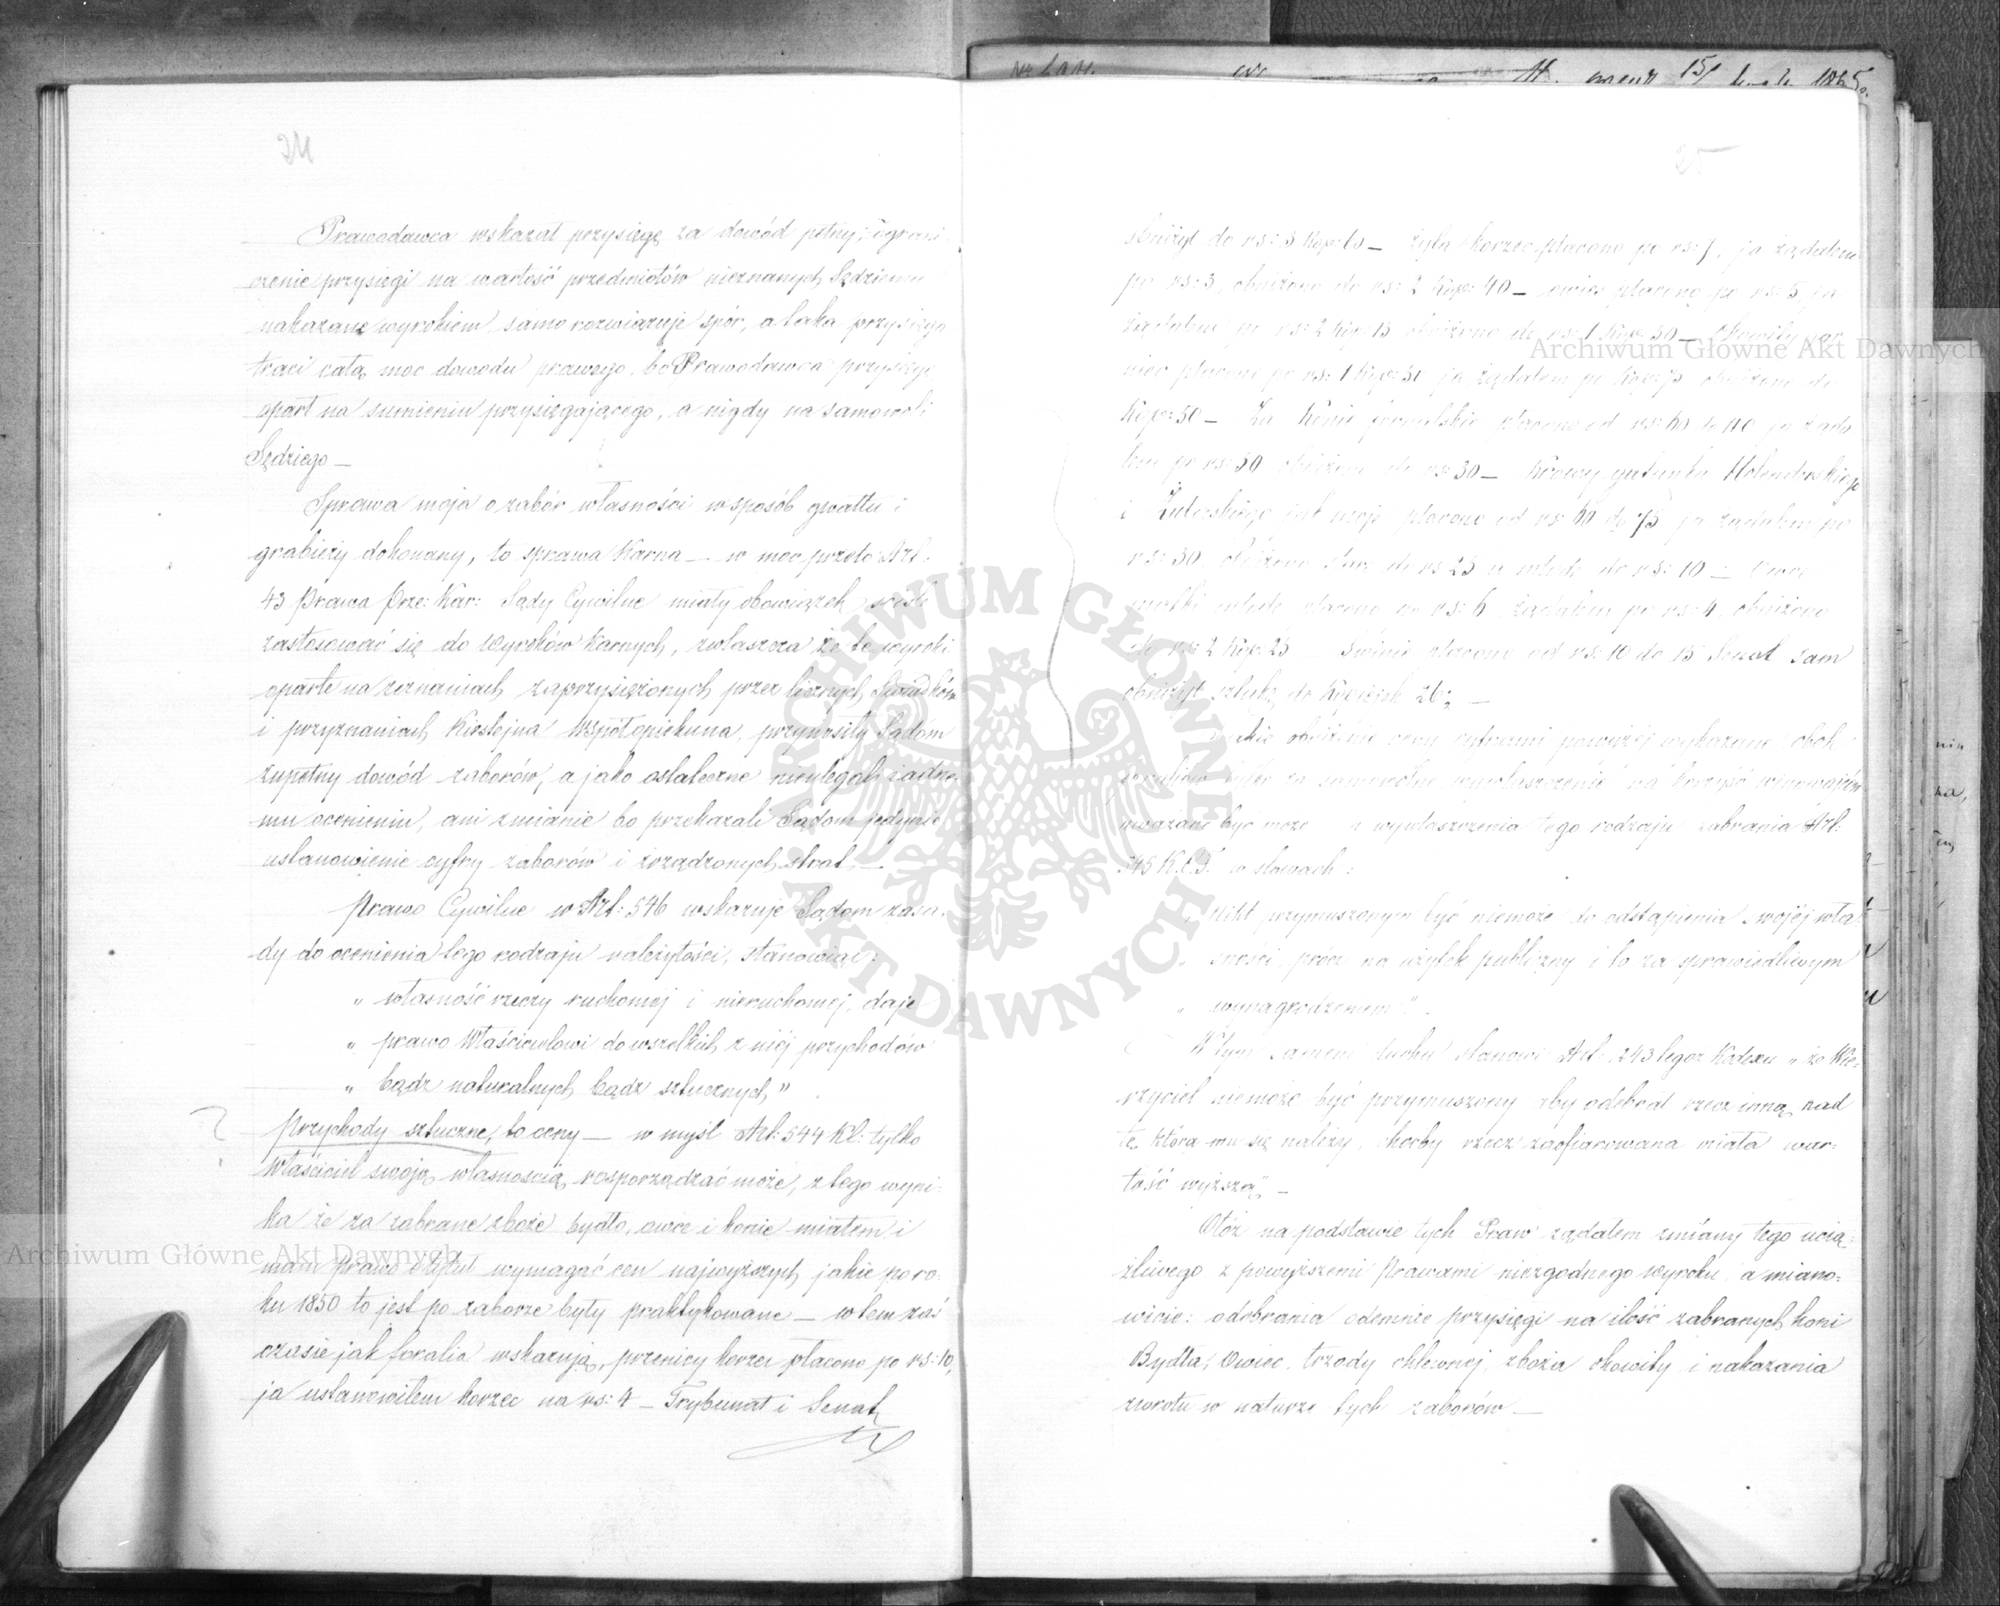 24
Prawodawca wskazał przysięgę za dowód pełny; ograni
czenie przysięgi na wartość przedmiotów nieznanych Sędziemu
nakazane wyrokiem samo rozwiązuje spór, a taka przysięga
traci całą moc dowodu prawego, bo Prawodawca przysięgę
oparł na sumieniu przysięgającego, a nigdy na samowoli
Sędziego —
Sprawa moja o zabór własności w sposób gwałtu i
grabieży dokonany, to sprawa Karna — w moc przeto Art:
43 Prawa Prze: Kar: Sądy Cywilne miały obowiązek
zastosować się do wyroków Karnych, zwłaszcza że te wyroki
oparte na zeznaniach zaprzysiężonych przez licznych Świadków
i przyznaniach Kirstejna Współopiekuna, przynosiły Sądom
zupełny dowód zaborów, a jako ostateczne nieuległy żadne
mu ocenieniu, ani zmianie bo przekazali Sądom jedynie
ustanowienie cyfry zaborów i zrządzonych strat. —
Prawo Cywilne w Art: 546 wskazuje Sądom zasa,
dy do ocenienia tego rodzaju należytości, stanowiąc:
„ własność rzeczy ruchomej i nieruchomej, daje
„ prawo Właścicielowi do wszelkich z niej przychodów
„ bądź naturalnych bądź sztucznych"
przychody sztuczne, to ceny — w myśl Art: 544 Kl: tylko
właściciel swoją własnością rosporządzać może, z tego wyni
ka że za zabrane zboże bydło, owce i konie miałem i
mam prawo wymagać cen najwyższych jakie po ro:
ku 1850 to jest po zaborze były praktykowane — w tem zaś
czasie jak foralia wskazują, pszenicy korzec płacono po rs: 10,
ja ustanowiłem korzec na rs: 4 — Trybunał i Senat
25
zniżył do rs: 3 Kop: 60 — żyta korzec płacono po rs: 7, ja żądałem
po rs: 3, obniżono do rs: 2 Kop: 40 — owies płacono po rs: 5, ja
żądałem po rs: 2 Kop: 15 obniżono do rs: 1 Kop: 50 — Okowity gar
niec płacono po rs: 1 Kop: 51 ja żądałem po Kop: 75 obniżono do
Kop: 50 — Za Konie fornalskie płacono od rs: 60 do 110 ja żąda
łem po rs: 50 obniżono do rs: 30 — Krowy gatunku Holenderskiego
i Żuławskiego jak moje płacono od rs: 60 do 75 ja żądałem po
rs: 30, obniżono stare do rs 25 a młode do rs: 10 — Owce
matki młode płacono po rs: 6, żądałem po rs: 4, obniżono
do rs: 2 Kop: 25 — Świnie płacono od rs: 10 do 15 Senat sam
obniżył sztukę do Kopiejek 26
Takie obniżenie ceny cyframi powyżej wykazane obok
tylko za samowolne wywłaszczenie na korzyść winowajców
uważane być może a wywłaszczenia tego rodzaju zabrania Art:
545 K.C.F. w słowach:
„ Nikt przymuszonym być niemoże do odstąpienia swojej wła
„ sności, prócz na użytek publiczny i to za sprawiedliwym
„ wynagrodzeniem" —
W tym samem duchu stanowi Art: 1243 tegoż Kodexu „że Wie:
rzyciel niemoże być przymuszony aby odebrał rzecz inną, nad
tę, która mu się należy, choćby rzecz zaofiarowana miała war:
tość wyższą" —
Otóż na podstawie tych Praw żądałem zmiany tego ucią:
żliwego z powyższemi Prawami niezgodnego wyroku, a miano:
wicie: odebrania odemnie przysięgi na ilość zabranych koni
Bydła, Owiec, trzody chlewnej, zboża okowity i nakazania
zwrotu w naturze tych zaborów —
Archiwum Główne Akt Dawnych
Archiwum Główne Akt Dawnych
ARCHIWUM GŁÓWNE AKT DAWNYCH